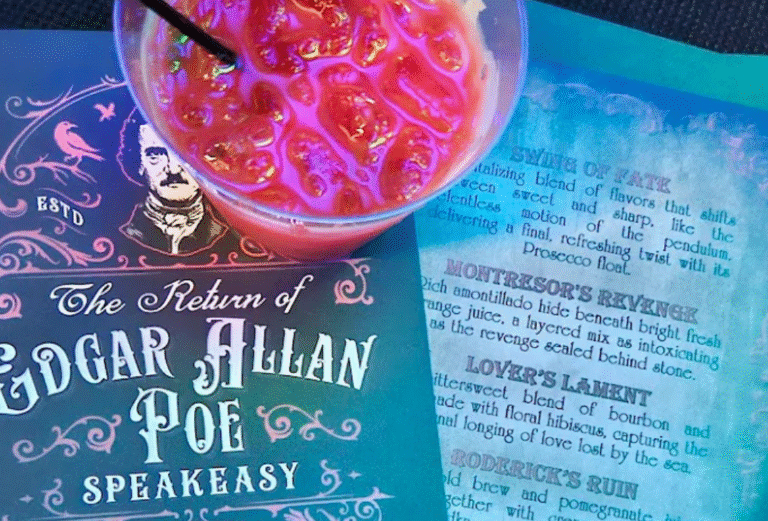 ESTD
The Return of
EDGAR ALLAN
POE
SPEAKEASY
SWING OF FATE
blend of flavors that shifts
sweet and sharp, like the
motion of the pendulum,
delivering a final, refreshing twist with its
Prosecco float.
MONTRESOR'S REVENGE
Rich amontillado hide beneath bright fresh
juice, a layered mix as intoxicating
as the revenge sealed behind stone.
LOVER'S LAMENT
blend of bourbon and
with floral hibiscus, capturing the
longing of love lost by the sea.
RODERICK'S RUIN
brew and pomegranate
with